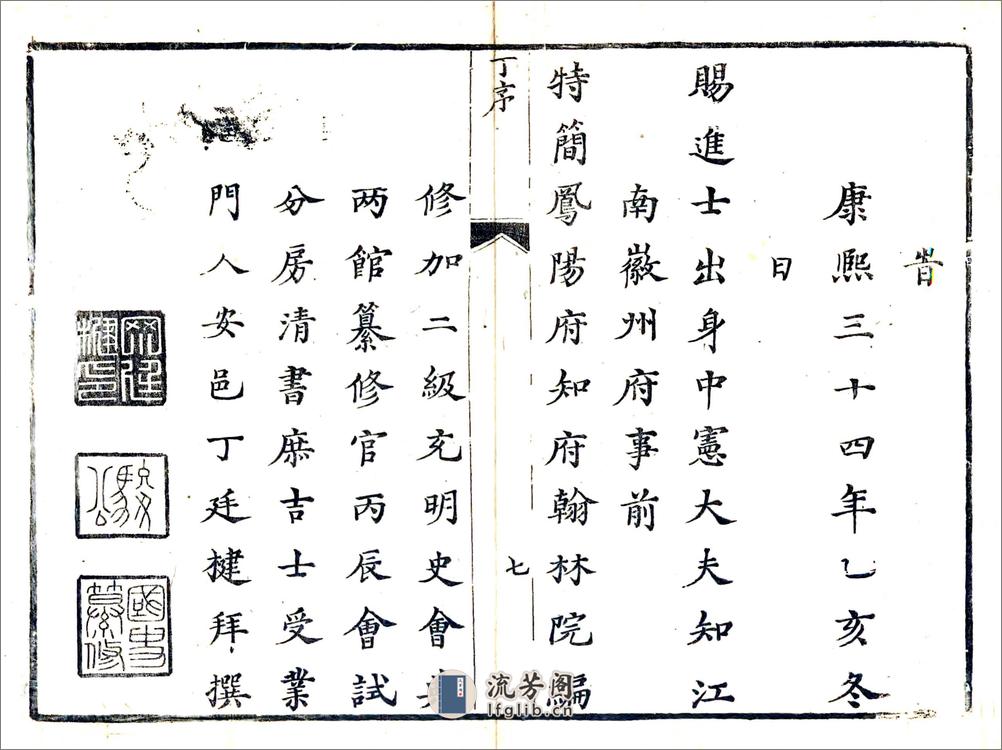 旹
康熙三十四年乙亥冬
日
賜進士出身中憲大夫知江
南徽州府事前
特簡鳳陽府知府翰林院編
丁序
七
修加二級充明史會
两館纂修官丙辰會試
分房清書庶吉士受業
門人安邑丁廷楗拜撰
丁廷楗印
國史纂修
流芳阁
lfglib.cn